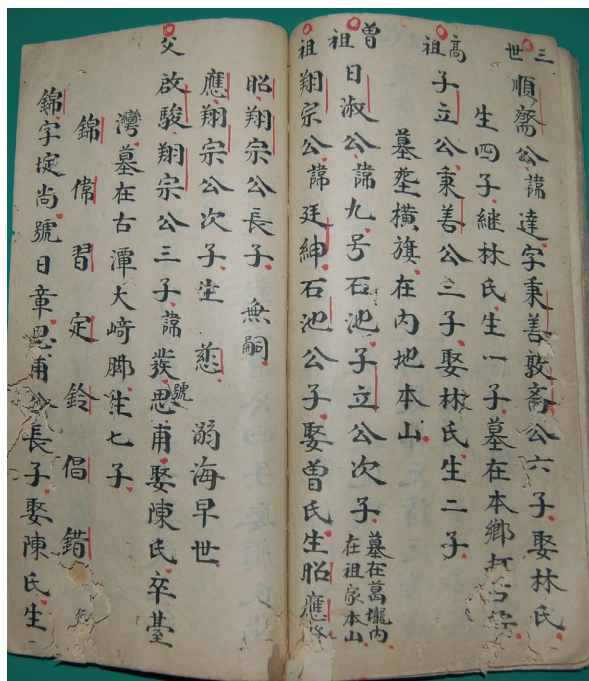 三世 順齋公諱達字秉善敦齋公六子娶林氏
生四子繼林氏生一子墓在本鄉
高祖 子立公秉善公三子娶林氏生二子
墓塟橫旗在内地本山
曾祖 日淑公諱九号石池子立公次子墓在葛壠内在祖家本山
祖 翔宗公諱廷紳石池公子娶曾氏生昭應
昭翔宗公長子無嗣
應翔宗公次子 溺海早世
父 啟駿翔宗公三子諱 號思甫娶陳氏卒臺
灣墓在古潭大﨑脚生七子
錦 偉 習 定 鈴 倡 錯
錦字埞尚號日章思甫公長子娶陳氏生一